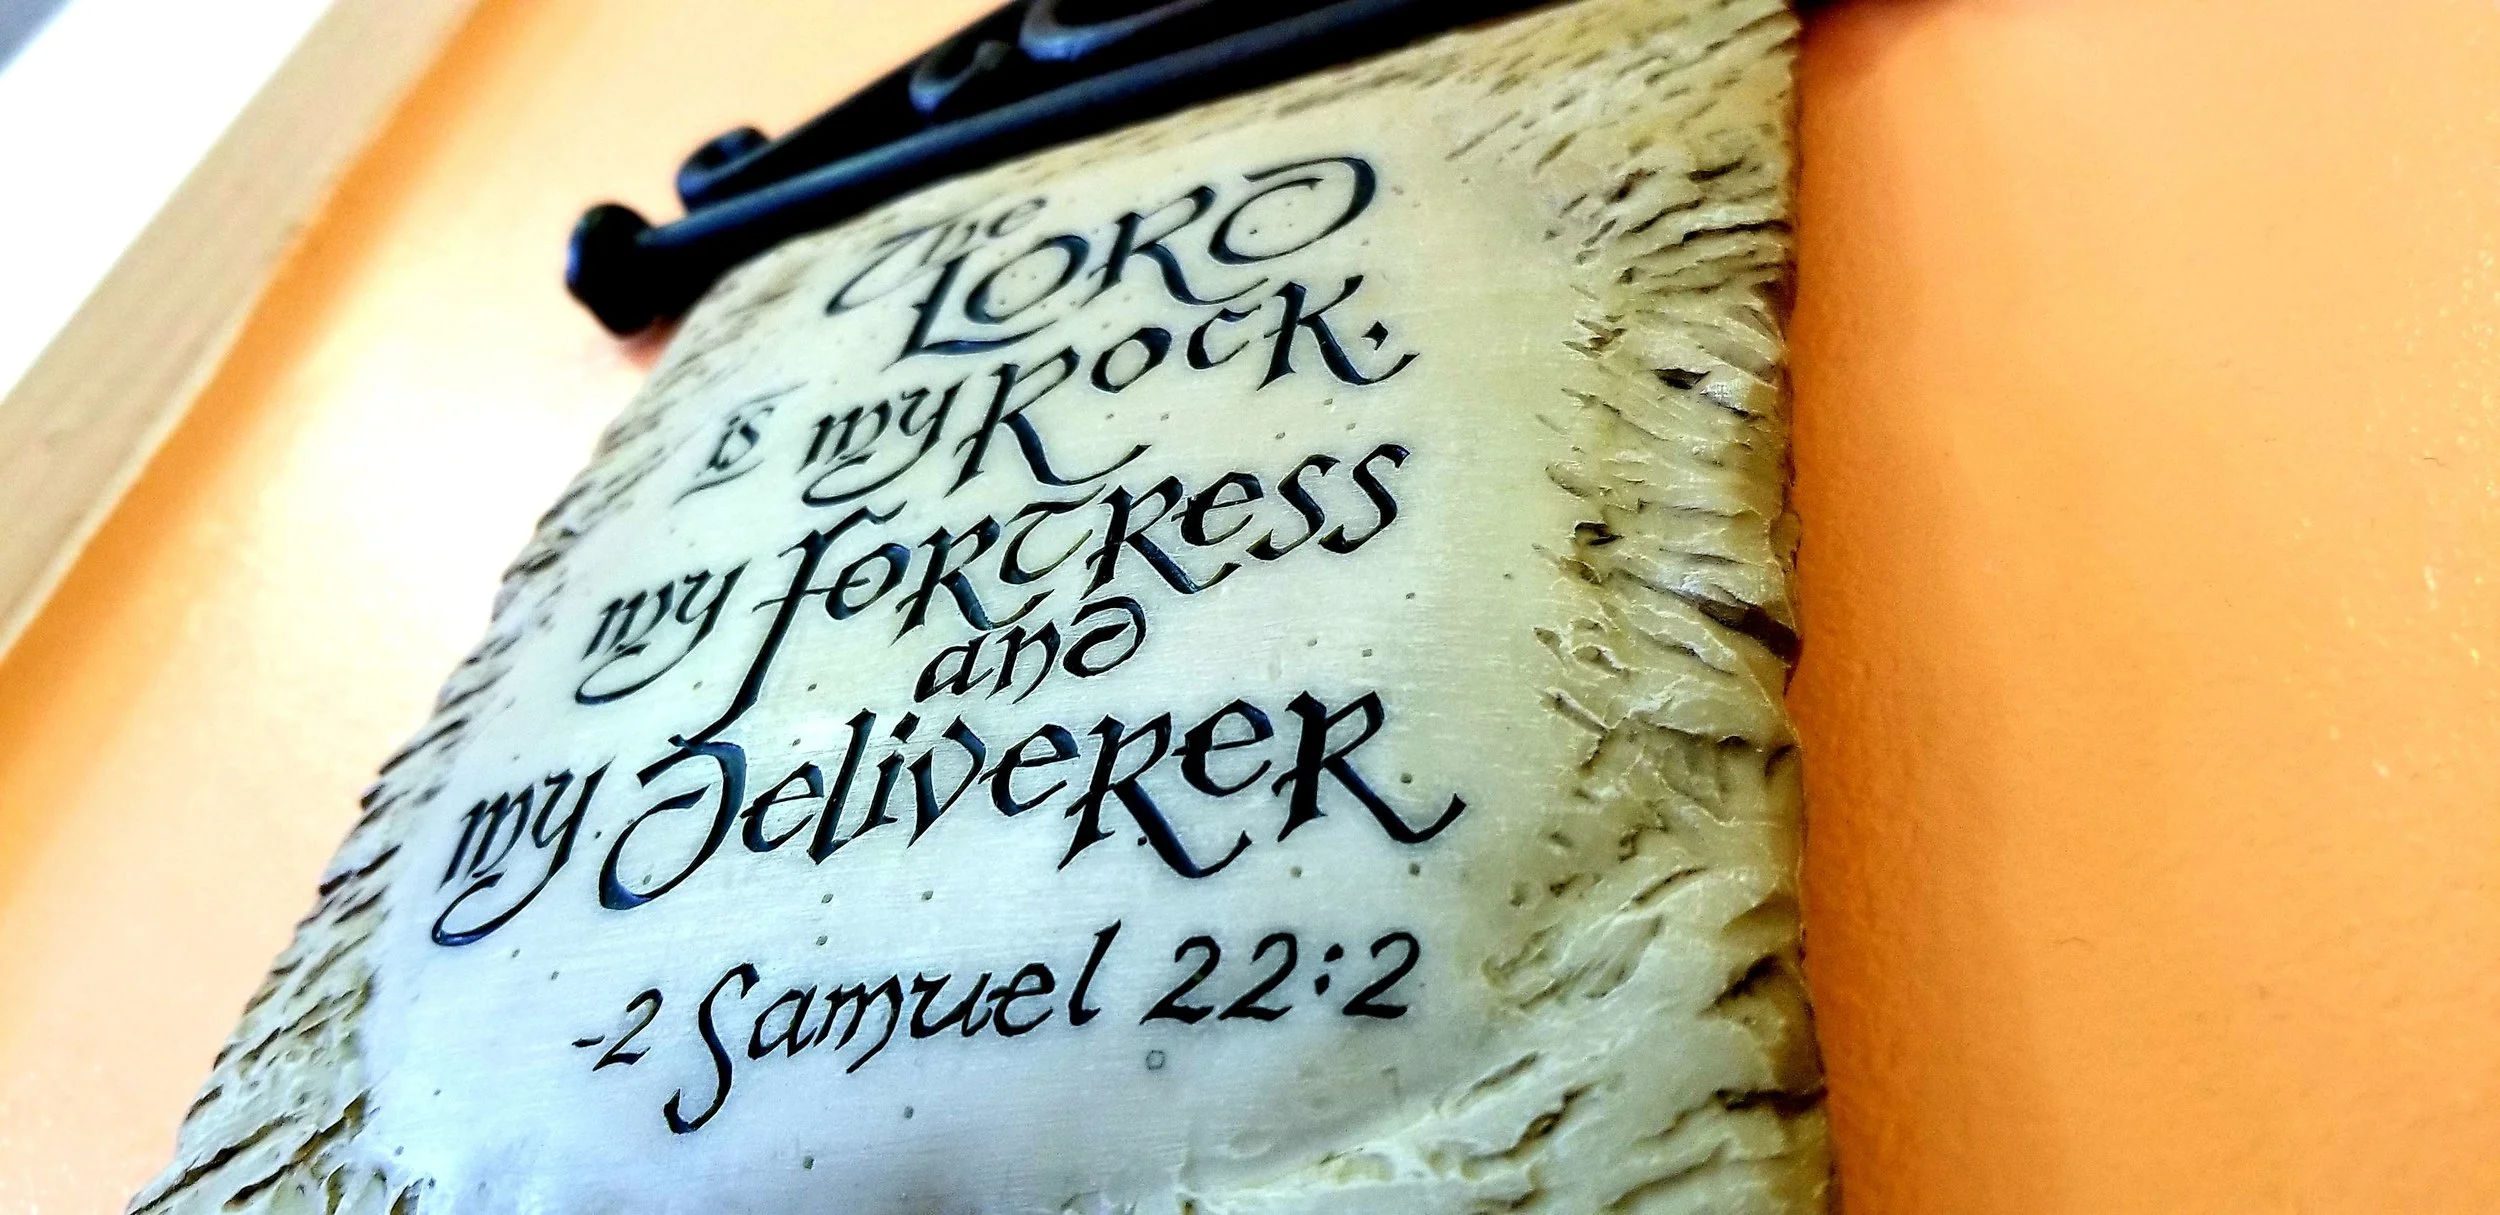 The
LORD
is my Rock.
my fortress
and
my Deliverer
-2 Samuel 22:2